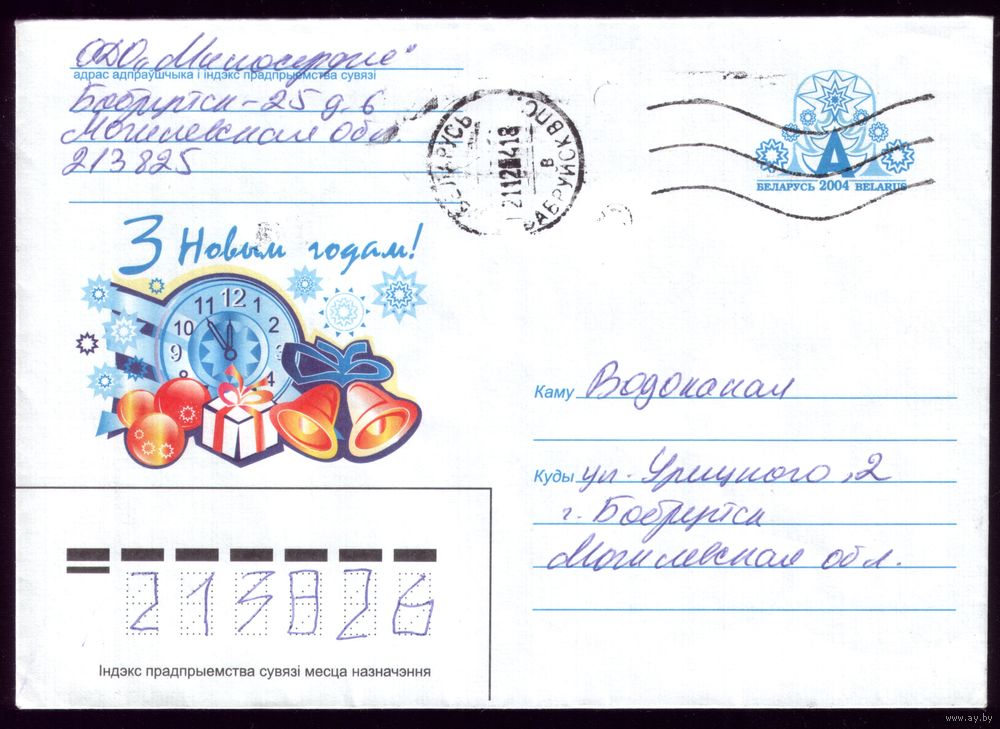 ОДО „Милосердие"
адрас адпраўшчыка і індэкс прадпрыемства сувязі
Бобруйск-25 д 6
Могилевская обл.
213825
БЕЛАРУСЬ 2004 BELARUS
А
З Новым годам!
11 12 1
10 2
9 3
4
Каму Водоканал
Куды ул. Урицкого, 2
г. Бобруйск
Могилевская обл.
213826
Індэкс прадпрыемства сувязі месца назначэння
www.ay.by